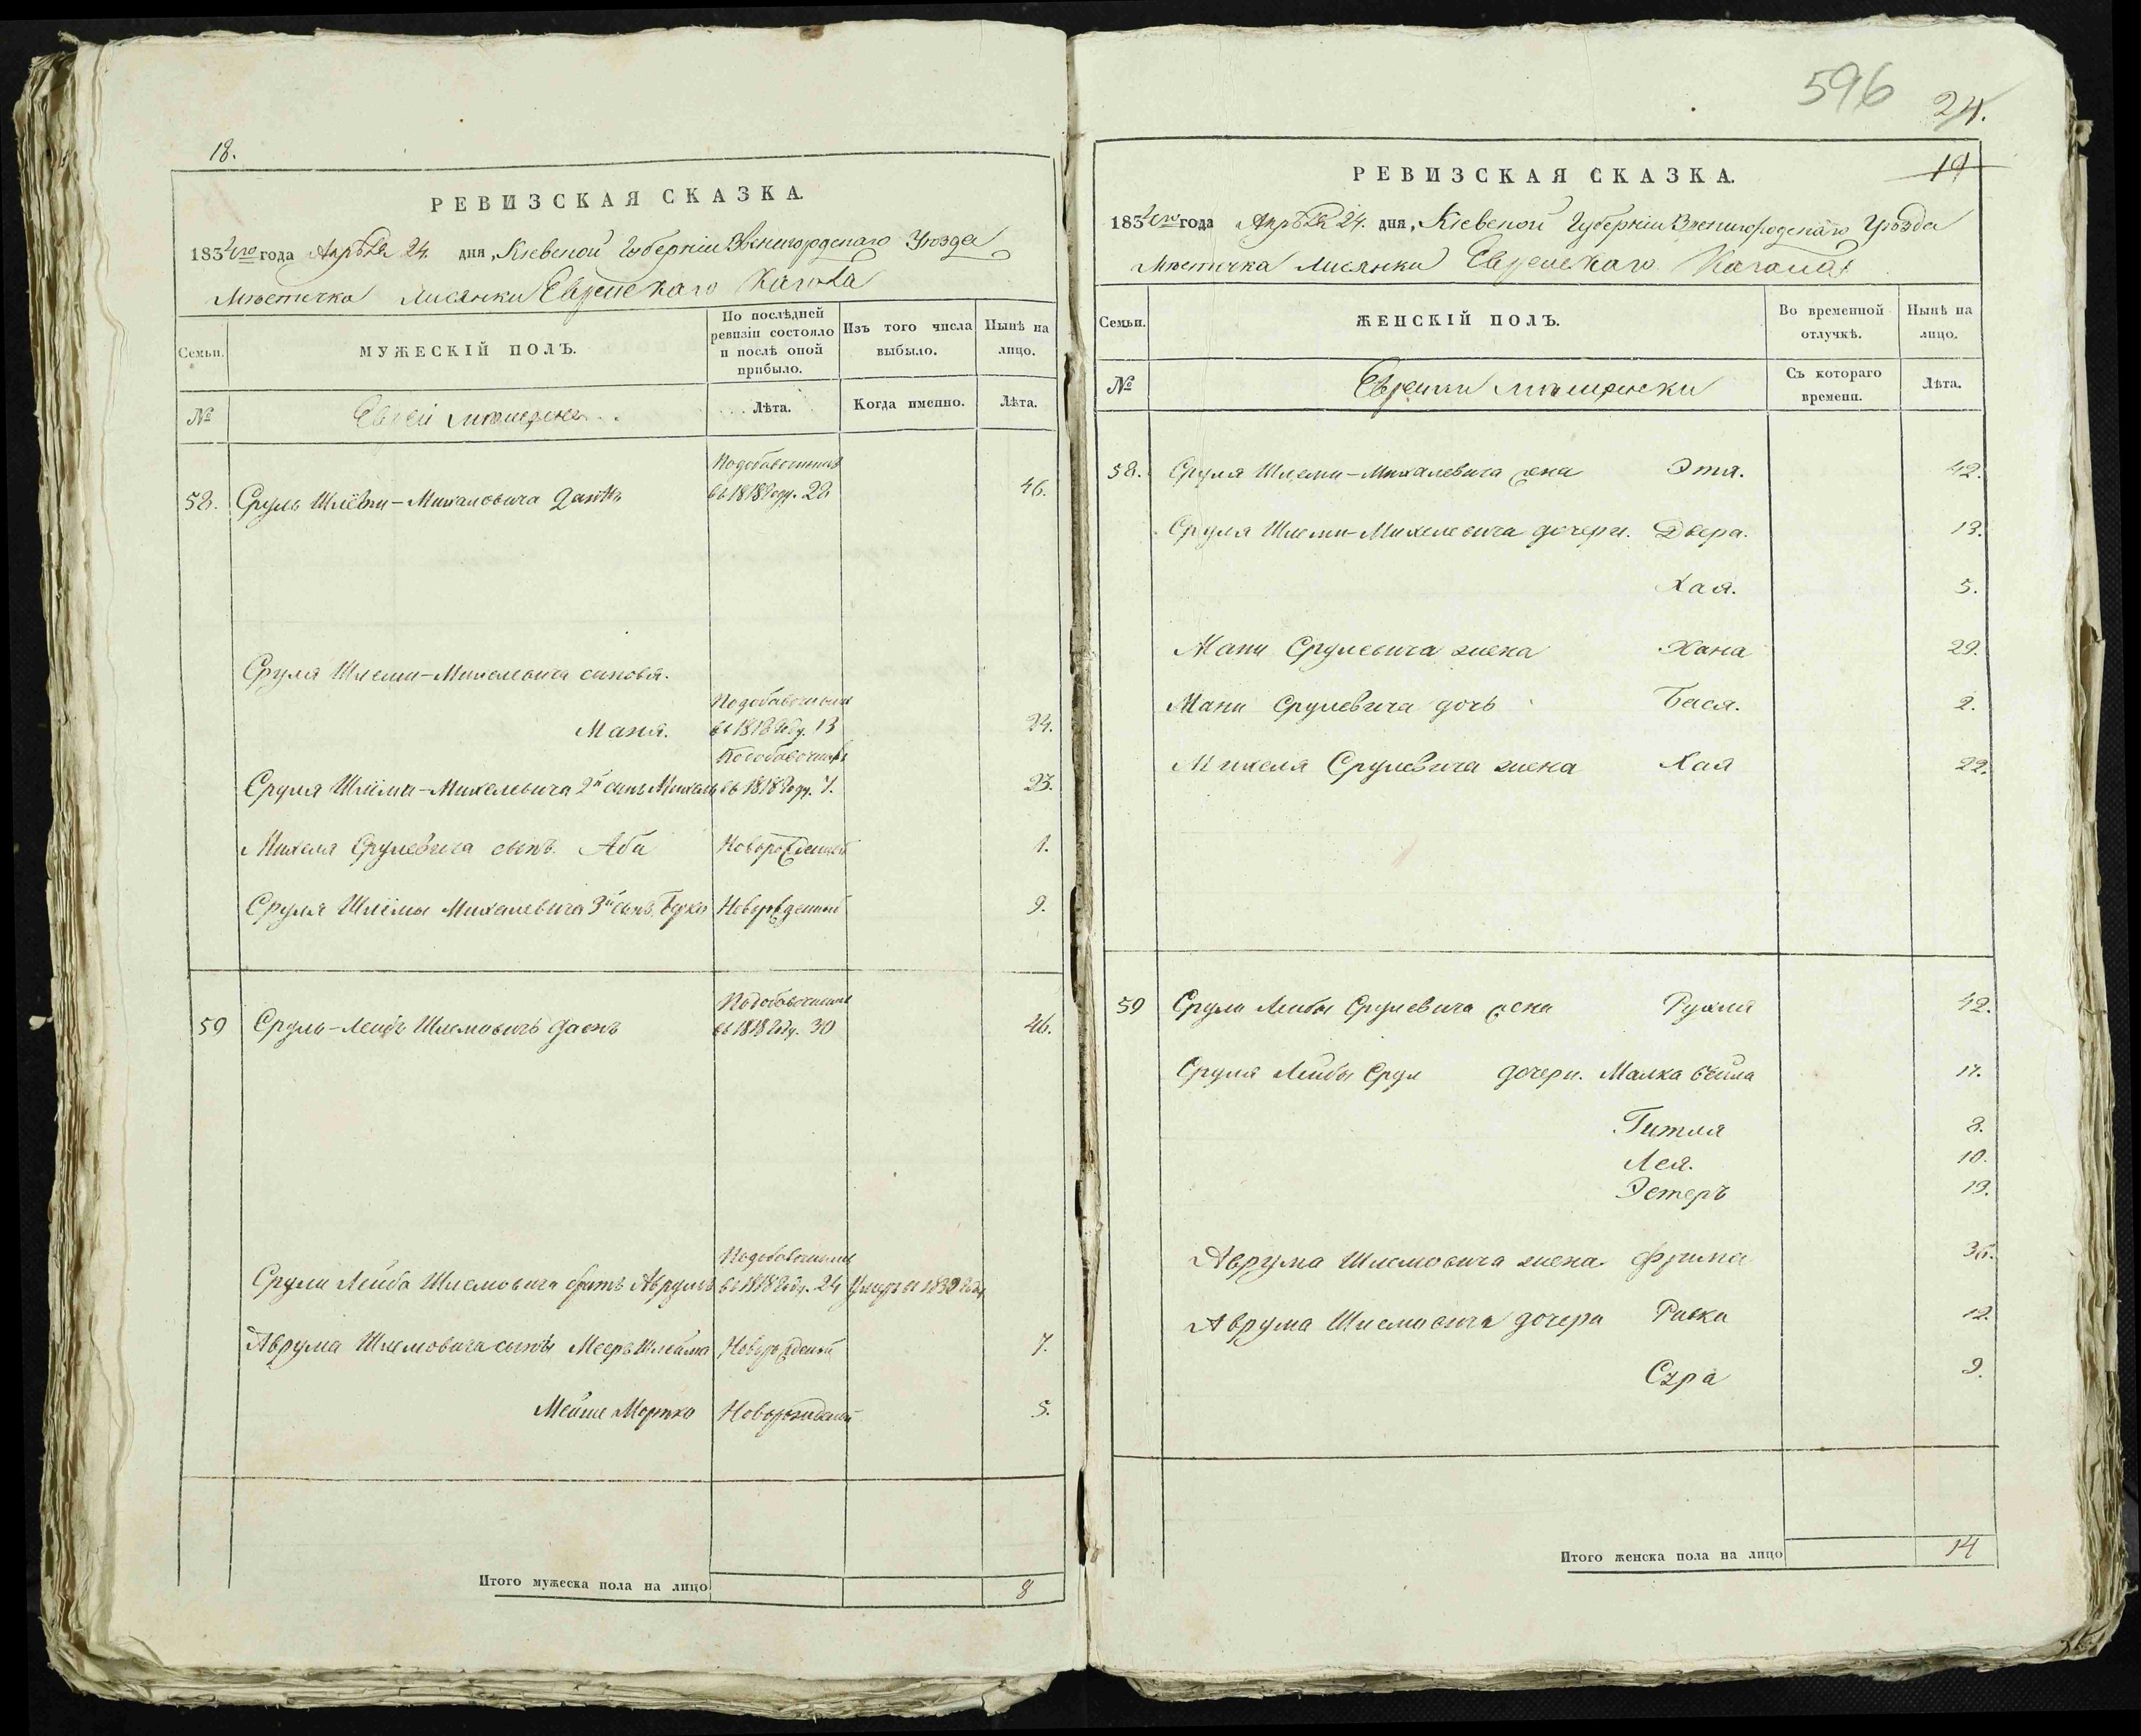 18.
РЕВИЗСКАЯ СКАЗКА.
1834го года Апрѣля 24. дня, Кіевской Губерніи Звенигородскаго Уѣзда
Мѣстечка Лисянки Еврейскаго Кагала
Семьи.
МУЖЕСКІЙ ПОЛЪ.
По послѣдней ревизіи состояло и послѣ оной прибыло.
Изъ того числа выбыло.
Нынѣ на лицо.
№
Евреи мѣщане
Лѣта.
Когда именно.
Лѣта.
58. Сруль Шлёми-Михаловича
Подобавочным
въ 1818 году. 28
46.
Сруля Шлеми-Михелевича синовя.
Маня.
Подобавочным
въ 1818 году. 13
24.
Сруля Шлёми-Михелевича 2й сынъ Михель
Подобавочным
въ 1818 году. 7.
23.
Михеля Срулевича сынъ. Аба Новорожденый 1.
Сруля Шлёмы Михелевича 3й сынъ Новорожденный 9.
59 Сруль-Лейбъ Шлемовичъ
Подобавочным
въ 1818 году. 30
46.
Сруля Лейба Шлемовича братъ Аврумъ
Подобавочным
въ 1818 году. 24 Умеръ въ 1830 году
Аврума Шлемовича сыны Мееръ Шлейма Новорожденый 7.
Мейше Мортко Новорожденый 5.
Итого мужеска пола на лицо 8
596
24.
19
РЕВИЗСКАЯ СКАЗКА.
1834го года Апрѣля 24. дня, Кіевской Губерніи Звенигородскаго Уѣзда
Мѣстечка Лисянки Еврейскаго Кагала
Семьи.
ЖЕНСКІЙ ПОЛЪ.
Во временной отлучкѣ.
Нынѣ на лицо.
№
Еврейки мѣщанки
Съ котораго времени.
Лѣта.
58. Сруля Шлеми-Михалевича жена Этя. 42.
Сруля Шлеми-Михелевича дочери. Двера. 13.
Хая. 5.
Мани Срулевича жена Хана 29.
Мани Срулевича дочь Бася. 2.
Михеля Срулевича жена Хая 22.
59 Сруля Лейбы Срулевича жена Рухля 42.
Сруля Лейбы Срул дочери. Малка 17.
Гитля 8.
Лея. 10.
Эстеръ 13.
Аврума Шлемовича жена Фрима 36.
Аврума Шлемовича дочери Ривка 12.
Сура 9.
Итого женска пола на лицо 14